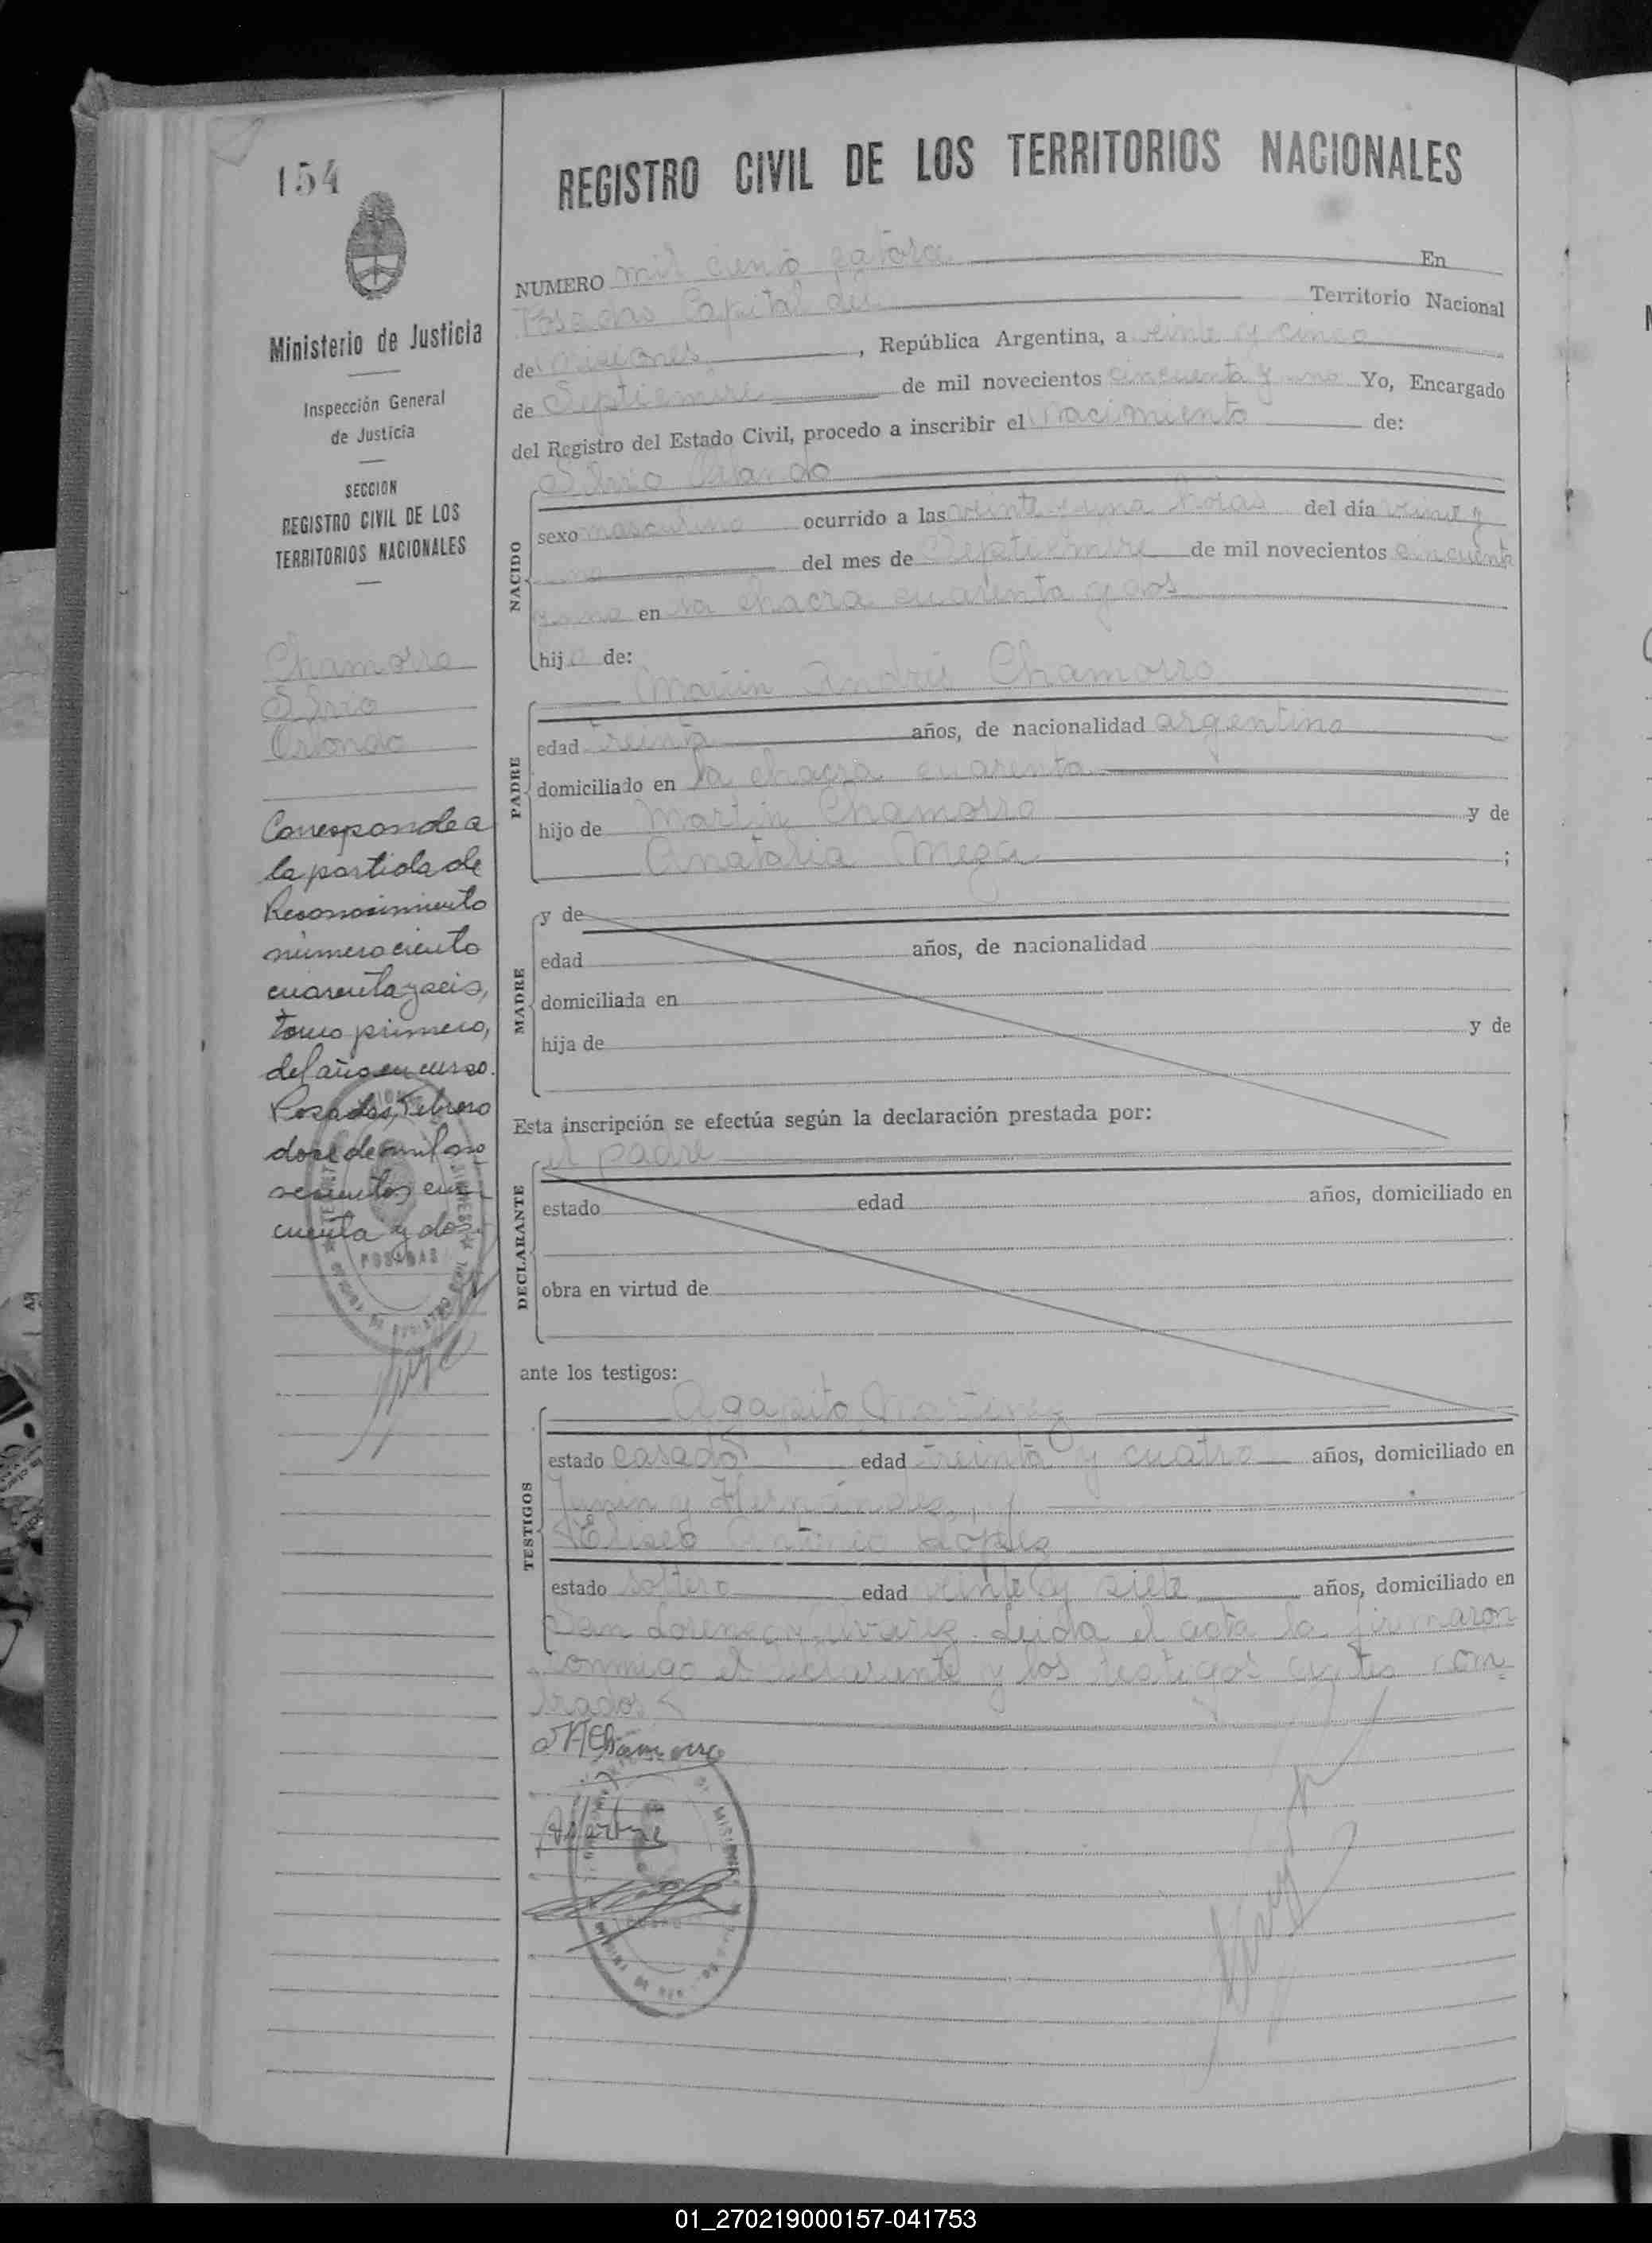 154
Ministerio de Justicia
Inspección General
de Justicia
SECCION
REGISTRO CIVIL DE LOS
TERRITORIOS NACIONALES
Chamorro
Silvio
Orlando
Corresponde a
la partida de
Reconocimiento
número ciento
cuarenta y seis,
tomo primero,
del año en curso.
Posadas, Febrero
doce de mil no
vecientos cin
cuenta y dos.
POSADAS
REGISTRO CIVIL DE LOS TERRITORIOS NACIONALES
NUMERO mil ciento catorce En
Posadas Capital del Territorio Nacional
de Misiones, República Argentina, a veinte y cinco
de Septiembre de mil novecientos cincuenta y uno Yo, Encargado
del Registro del Estado Civil, procedo a inscribir el Nacimiento de:
Silvio Orlando
NACIDO
sexo masculino ocurrido a las veinte y una horas del día veinte y
uno del mes de Septiembre de mil novecientos cincuenta
y uno en la chacra cuarenta y dos
hijo de:
PADRE
Martin Andrés Chamorro
edad treinta años, de nacionalidad argentino
domiciliado en la chacra cuarenta
hijo de Martin Chamorro y de
Anatalia Meza;
MADRE
y de
edad años, de nacionalidad
domiciliada en
hija de y de
Esta inscripción se efectúa según la declaración prestada por:
DECLARANTE
el padre
estado edad años, domiciliado en
obra en virtud de
ante los testigos:
TESTIGOS
Agapito Martinez
estado casado edad treinta y cuatro años, domiciliado en
Junin y Hernandez, y
Eliseo Antonio López
estado soltero edad veinte y siete años, domiciliado en
San Lorenzo y Alvarez. Leida el acta la firmaron
conmigo el declarante y los testigos antes nom
brados
MAChamorro
01_270219000157-041753